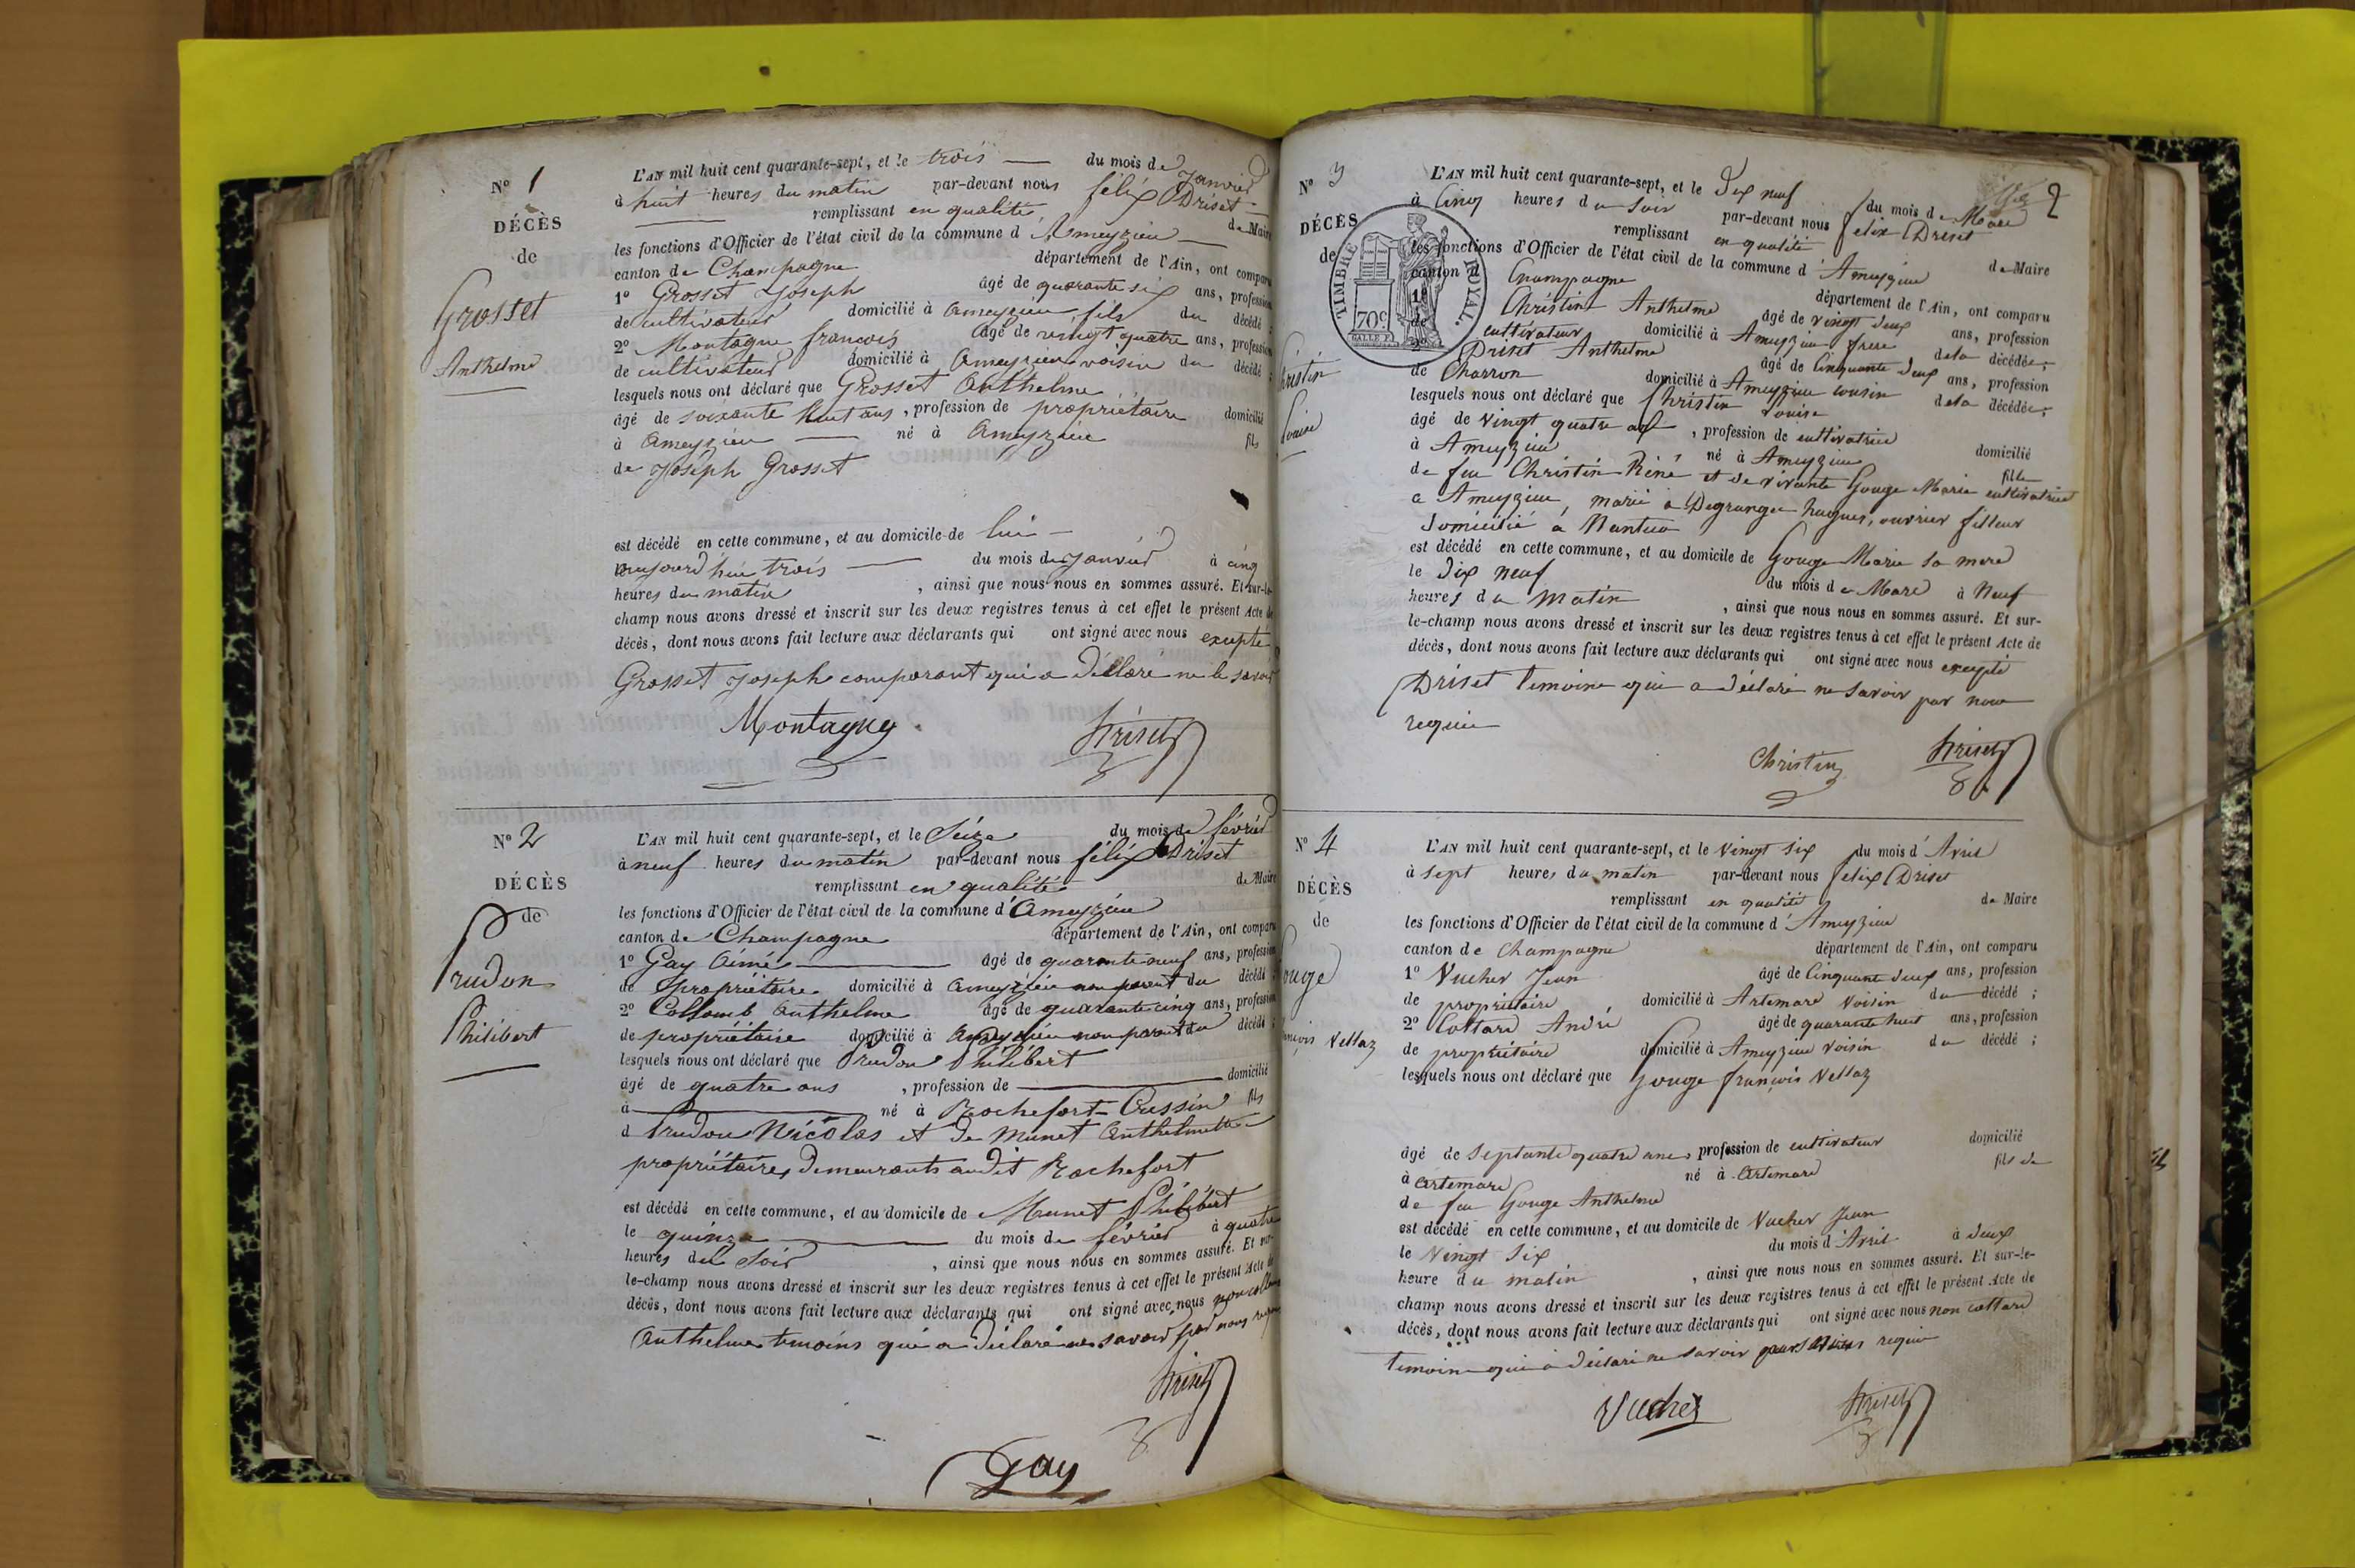 N° 1
DÉCÈS
de
Grosset
Anthelme
L'AN mil huit cent quarante-sept, et le trois du mois de Janvier
à huit heures du matin par-devant nous félix Driset
remplissant en qualité de Maire
les fonctions d'Officier de l'état civil de la commune d Ameyzieu
canton de Champagne département de l'Ain, ont comparu
1° Grosset Joseph âgé de quarante six ans, profession
de cultivateur domicilié à Ameyzieu fils du décédé ;
2° Montagne françois âgé de vingt quatre ans, profession
de cultivateur domicilié à Ameyzieu voisin du décédé ;
lesquels nous ont déclaré que Grosset Anthelme
âgé de soixante huit ans, profession de propriétaire domicilié
à Ameyzieu né à Ameyzieu fils
de Joseph Grosset
est décédé en cette commune, et au domicile de lui
aujourd'hui trois du mois de Janvier à cinq
heures du matin, ainsi que nous nous en sommes assuré. Et sur-le-
champ nous avons dressé et inscrit sur les deux registres tenus à cet effet le présent Acte de
décès, dont nous avons fait lecture aux déclarants qui ont signé avec nous excepté
Grosset Joseph comparant qui a déclaré ne le savoir
Montagny Driset
N° 2
DÉCÈS
de
Prudon
Philibert
L'AN mil huit cent quarante-sept, et le Seize du mois de février
à neuf heures du matin par-devant nous félix Driset
remplissant en qualité de Maire
les fonctions d'Officier de l'état civil de la commune d'Ameyzieu
canton de Champagne département de l'Ain, ont comparu
1° Gay Aimé âgé de quarante neuf ans, profession
de propriétaire domicilié à Ameyzieu non parent du décédé ;
2° Collomb Anthelme âgé de quarante cinq ans, profession
de propriétaire domicilié à Ameyzieu non parent du décédé ;
lesquels nous ont déclaré que Prudon Philibert
âgé de quatre ans, profession de domicilié
à né à Rochefort-Cussin fils
d Prudon Nicolas et de Munet Anthelmette
propriétaires demeurants audit Rochefort
est décédé en cette commune, et au domicile de Munet Philibert
le quinze du mois de février à quatre
heures du Soir, ainsi que nous nous en sommes assuré. Et sur-
le-champ nous avons dressé et inscrit sur les deux registres tenus à cet effet le présent Acte de
décès, dont nous avons fait lecture aux déclarants qui ont signé avec nous non Collomb
Anthelme temoins qui a déclaré ne savoir par nous requis
Driset
Gay
2
N° 3
DÉCÈS
de
TIMBRE ROYAL.
70c.
Christin
Louise
L'AN mil huit cent quarante-sept, et le Dix neuf du mois de Mars
à Cinq heures du Soir par-devant nous felix Driset
remplissant en qualité de Maire
les fonctions d'Officier de l'état civil de la commune d'Ameyzieu
canton d Champagne département de l'Ain, ont comparu
1° Christin Anthelme âgé de vingt deux ans, profession
de cultivateur domicilié à Ameyzieu frere dela décédée ;
2° Driset Anthelme âgé de Cinquante deux ans, profession
de Charron domicilié à Ameyzieu cousin dela décédée ;
lesquels nous ont déclaré que Christin Louise
âgé de vingt quatre ans, profession de cultivatrice domicilié
à Ameyzieu né à Ameyzieu fille
de feu Christin Réné et de vivante Gouge Marie cultivatrice
a Ameyzieu, marié a Degranges hugues, ouvrier filleur
domicilié a Nantua
est décédé en cette commune, et au domicile de Gouge Marie sa mere
le Dix neuf du mois de Mars à Neuf
heures du Matin, ainsi que nous nous en sommes assuré. Et sur-
le-champ nous avons dressé et inscrit sur les deux registres tenus à cet effet le présent Acte de
décès, dont nous avons fait lecture aux déclarants qui ont signé avec nous excepté
Driset temoine qui a déclaré ne savoir par nous
requis
Christin Driset
N° 4
DÉCÈS
de
Gouge
françois Vettaz
L'AN mil huit cent quarante-sept, et le vingt six du mois d'Avril
à sept heures du matin par-devant nous felix Driset
remplissant en qualité de Maire
les fonctions d'Officier de l'état civil de la commune d'Ameyzieu
canton de Champagne département de l'Ain, ont comparu
1° Vucher Jean âgé de Cinquante deux ans, profession
de propriétaire, domicilié à Artemare voisin du décédé ;
2° Cottard André âgé de quarante huit ans, profession
de propriétaire domicilié à Ameyzieu voisin du décédé ;
lesquels nous ont déclaré que Gouge françois Vettaz
âgé de septante quatre ans profession de cultivateur domicilié
à Artemare né à Artemare fils de
de feu Gouge Anthelme
est décédé en cette commune, et au domicile de Vucher Jean
le vingt six du mois d'Avril à deux
heure du matin, ainsi que nous nous en sommes assuré. Et sur-le-
champ nous avons dressé et inscrit sur les deux registres tenus à cet effet le présent Acte de
décès, dont nous avons fait lecture aux déclarants qui ont signé avec nous non Cottard
temoine qui à déclaré ne savoir requis
Vucher Driset